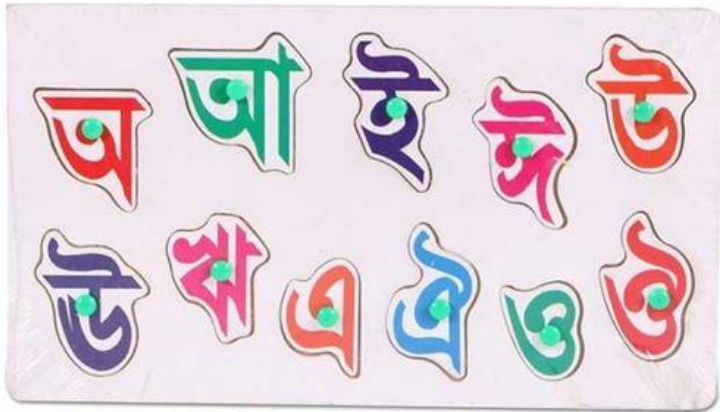 অ আ ই ঈ উ
ঊ ঋ এ ঐ ও ঔ